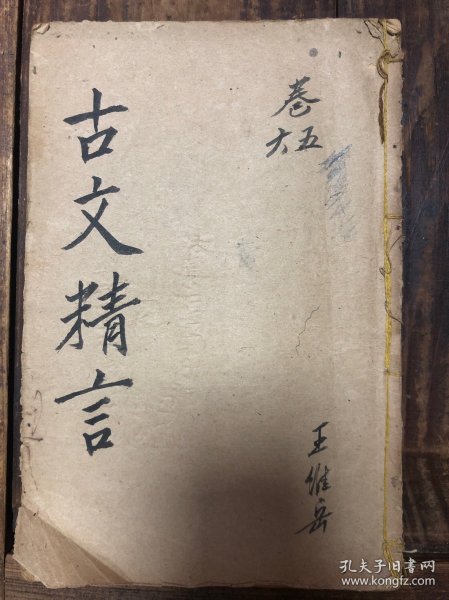 古文精言
卷五六
王維岳
孔夫子旧书网
www.kongfz.com